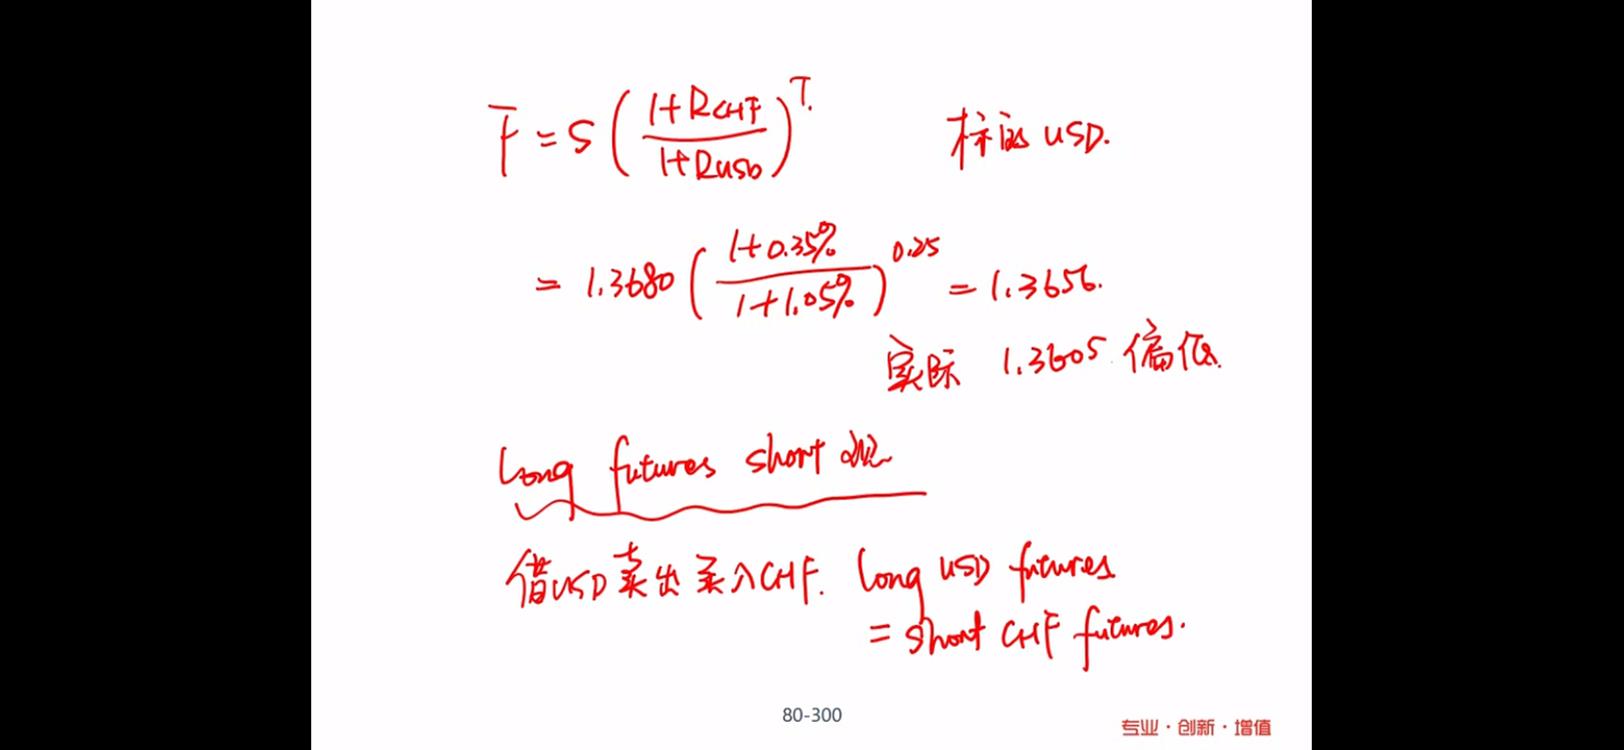 F = S ( (1+RCHF) / (1+RUSD) )^T. 标的 USD.
= 1.3680 ( (1+0.35%) / (1+1.05%) )^0.25 = 1.3656.
实际 1.3605 偏低.
Long futures short 现
借USD卖出买入CHF. long USD futures
= short CHF futures.
80-300
专业·创新·增值